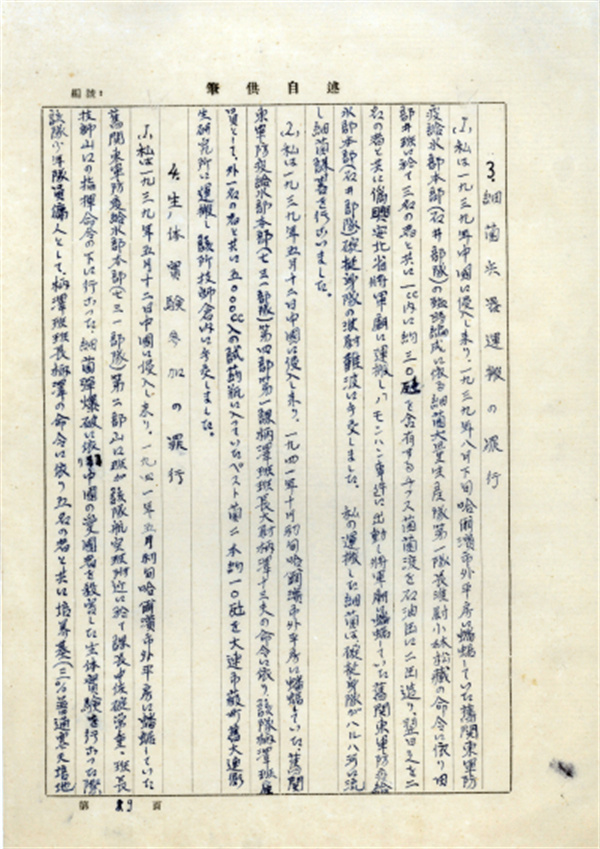 編號:
筆供自述
3.細菌兵器運搬の罪行
(1)、私は一九三九年中國に侵入し来り、一九三九年八月下旬哈爾濱市外平房に蟠踞していた舊関東軍防
疫給水部本部(石井部隊)の臨時編成に依る細菌大量生産隊第一隊長 尉小林松蔵の命令に依り田
部井班に於て三名の者と共に一cc内に約三〇 を含有するチフス菌菌液を石油缶に二缶造り、翌日之を二
名の者と共に偽興安北省将軍廟に運搬し、ノモンハン事件に出動し将軍廟に蟠踞していた舊関東軍防疫給
水部本部(石井部隊)碇挺身隊の 尉難波に手交しました。 私の運搬した細菌は碇挺身隊がハルハ河に流
し細菌謀畧を行いました。
(2)、私は一九三九年五月十二日中國に侵入し来り、一九四一年十月初旬哈爾濱市外平房に蟠踞していた舊関
東軍防疫給水部本部(七三一部隊)第四部第一課柄澤班班長大尉柄澤十三夫の命令に依り、該隊柄澤班雇
員として、外一名の者と共に五〇〇〇cc入の試薬瓶に入っていたペスト菌二本約一〇 を大連市 町舊大連衛
生研究所に運搬し該所技師倉内に手交しました。
4.生体實験参加の罪行
(1)、私は一九三九年五月十二日中國に侵入し来り、一九四一年五月初旬哈爾濱市外平房に蟠踞していた
舊関東軍防疫給水部本部(七三一部隊)第二部山口班が該隊航空班附近に於て課長中佐碇常重、班長
技師山口の指揮命令の下に行った、細菌弾爆破に依り中國の愛國者を殺害した生体實験を行った際
該隊少年隊員傭人として柄澤班班長柄澤の命令に依り五名の者と共に培养基(三%普通寒天培地
第 89 頁